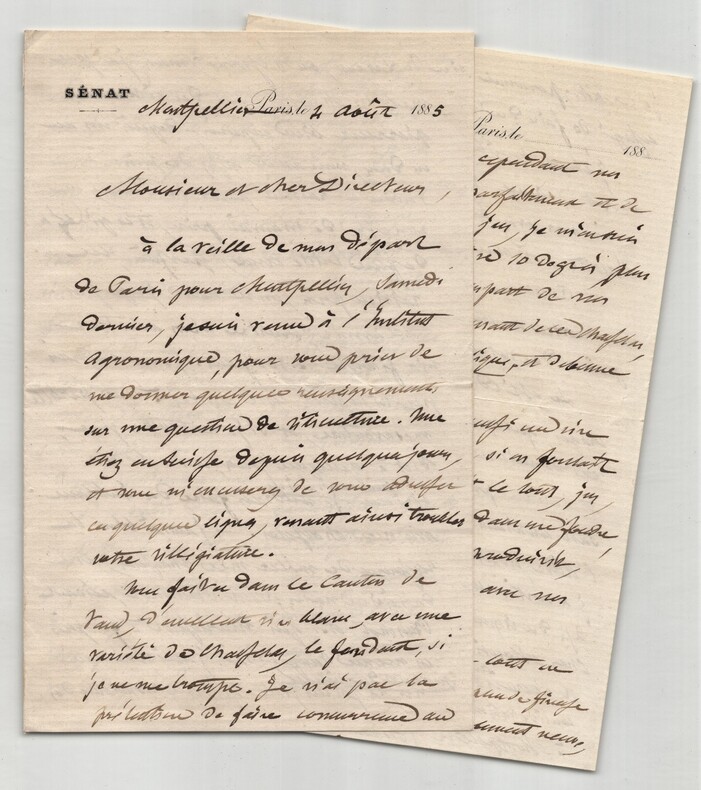 SÉNAT
Montpellier Paris, le 4 août 1885
Monsieur et cher Directeur,
à la veille de mon départ
de Paris pour Montpellier, samedi
dernier, je suis venu à l'Institut
agronomique, pour vous prier de
me donner quelques renseignements
sur une question de viticulture. Vous
étiez en Suisse depuis quelques jours,
et vous m'excuserez de vous adresser
ces quelques lignes, venant ainsi troubler
votre villégiature.
Vous faites dans le Canton de
Vaud, d'excellent vin blanc, avec une
variété de chasselas, le fondant, si
je ne me trompe. Je n'ai pas la
prétention de faire concurrence au
Paris, le 188
cependant nos
parfaitement et de
jus, je
10 degrés
part de nos
de ce chasselas,
et
vin
si on foulait
le tout, jus,
dans une foudre,
produirait,
avec nos
tout en
grande finesse